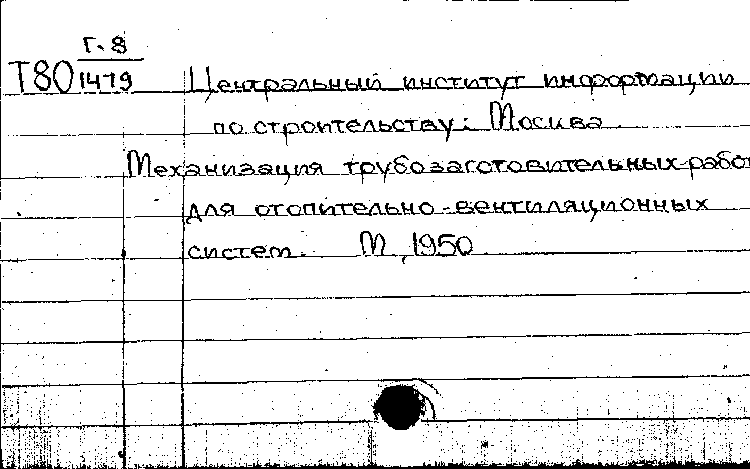 Г-8
Т80 1479 Центральный институт информации
по строительству. Москва.
Механизация трубозаготовительных работ
для отопительно-вентиляционных
систем. М, 1950